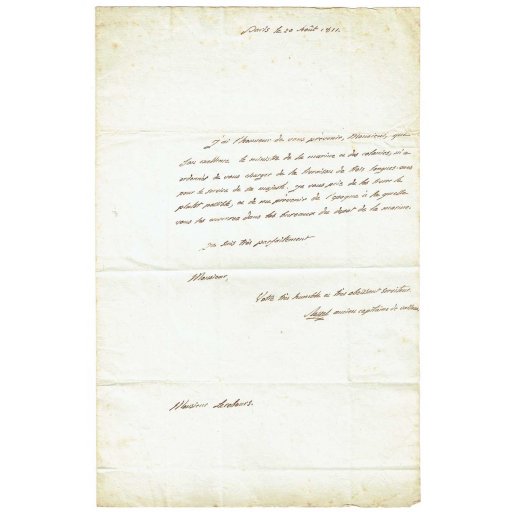 Paris le 20 Août 1811.
J'ai l'honneur de vous prévenir, Monsieur, que
Son excellence le ministre de la marine et des colonies, m'a
ordonné de vous charger de la fourniture de trois longues-vues
pour le service de sa majesté. Je vous prie de les livrer le
plutôt possible, et de me prévenir de l'époque à laquelle
vous les enverrez dans les bureaux du dépôt de la marine.
Je suis très parfaitement
Monsieur,
Votre très humble et très obéissant serviteur.
ancien capitaine de vaisseau
Monsieur Lerebours.